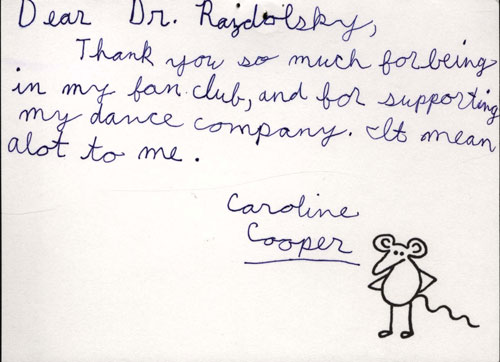 Dear Dr. Rajdolsky,
Thank you so much for being
in my fan club, and for supporting
my dance company. It mean
alot to me.
Caroline
Cooper